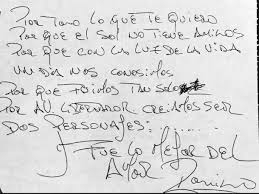 Por Todo lo que te quiero
Por que el sol no tiene amigos
Por que con la luz de la vida
un día nos conosimos
Por que fuimos tan solo
Por su creímos ser
Dos personajes:.......
Fue lo mejor del
Amor Danilo